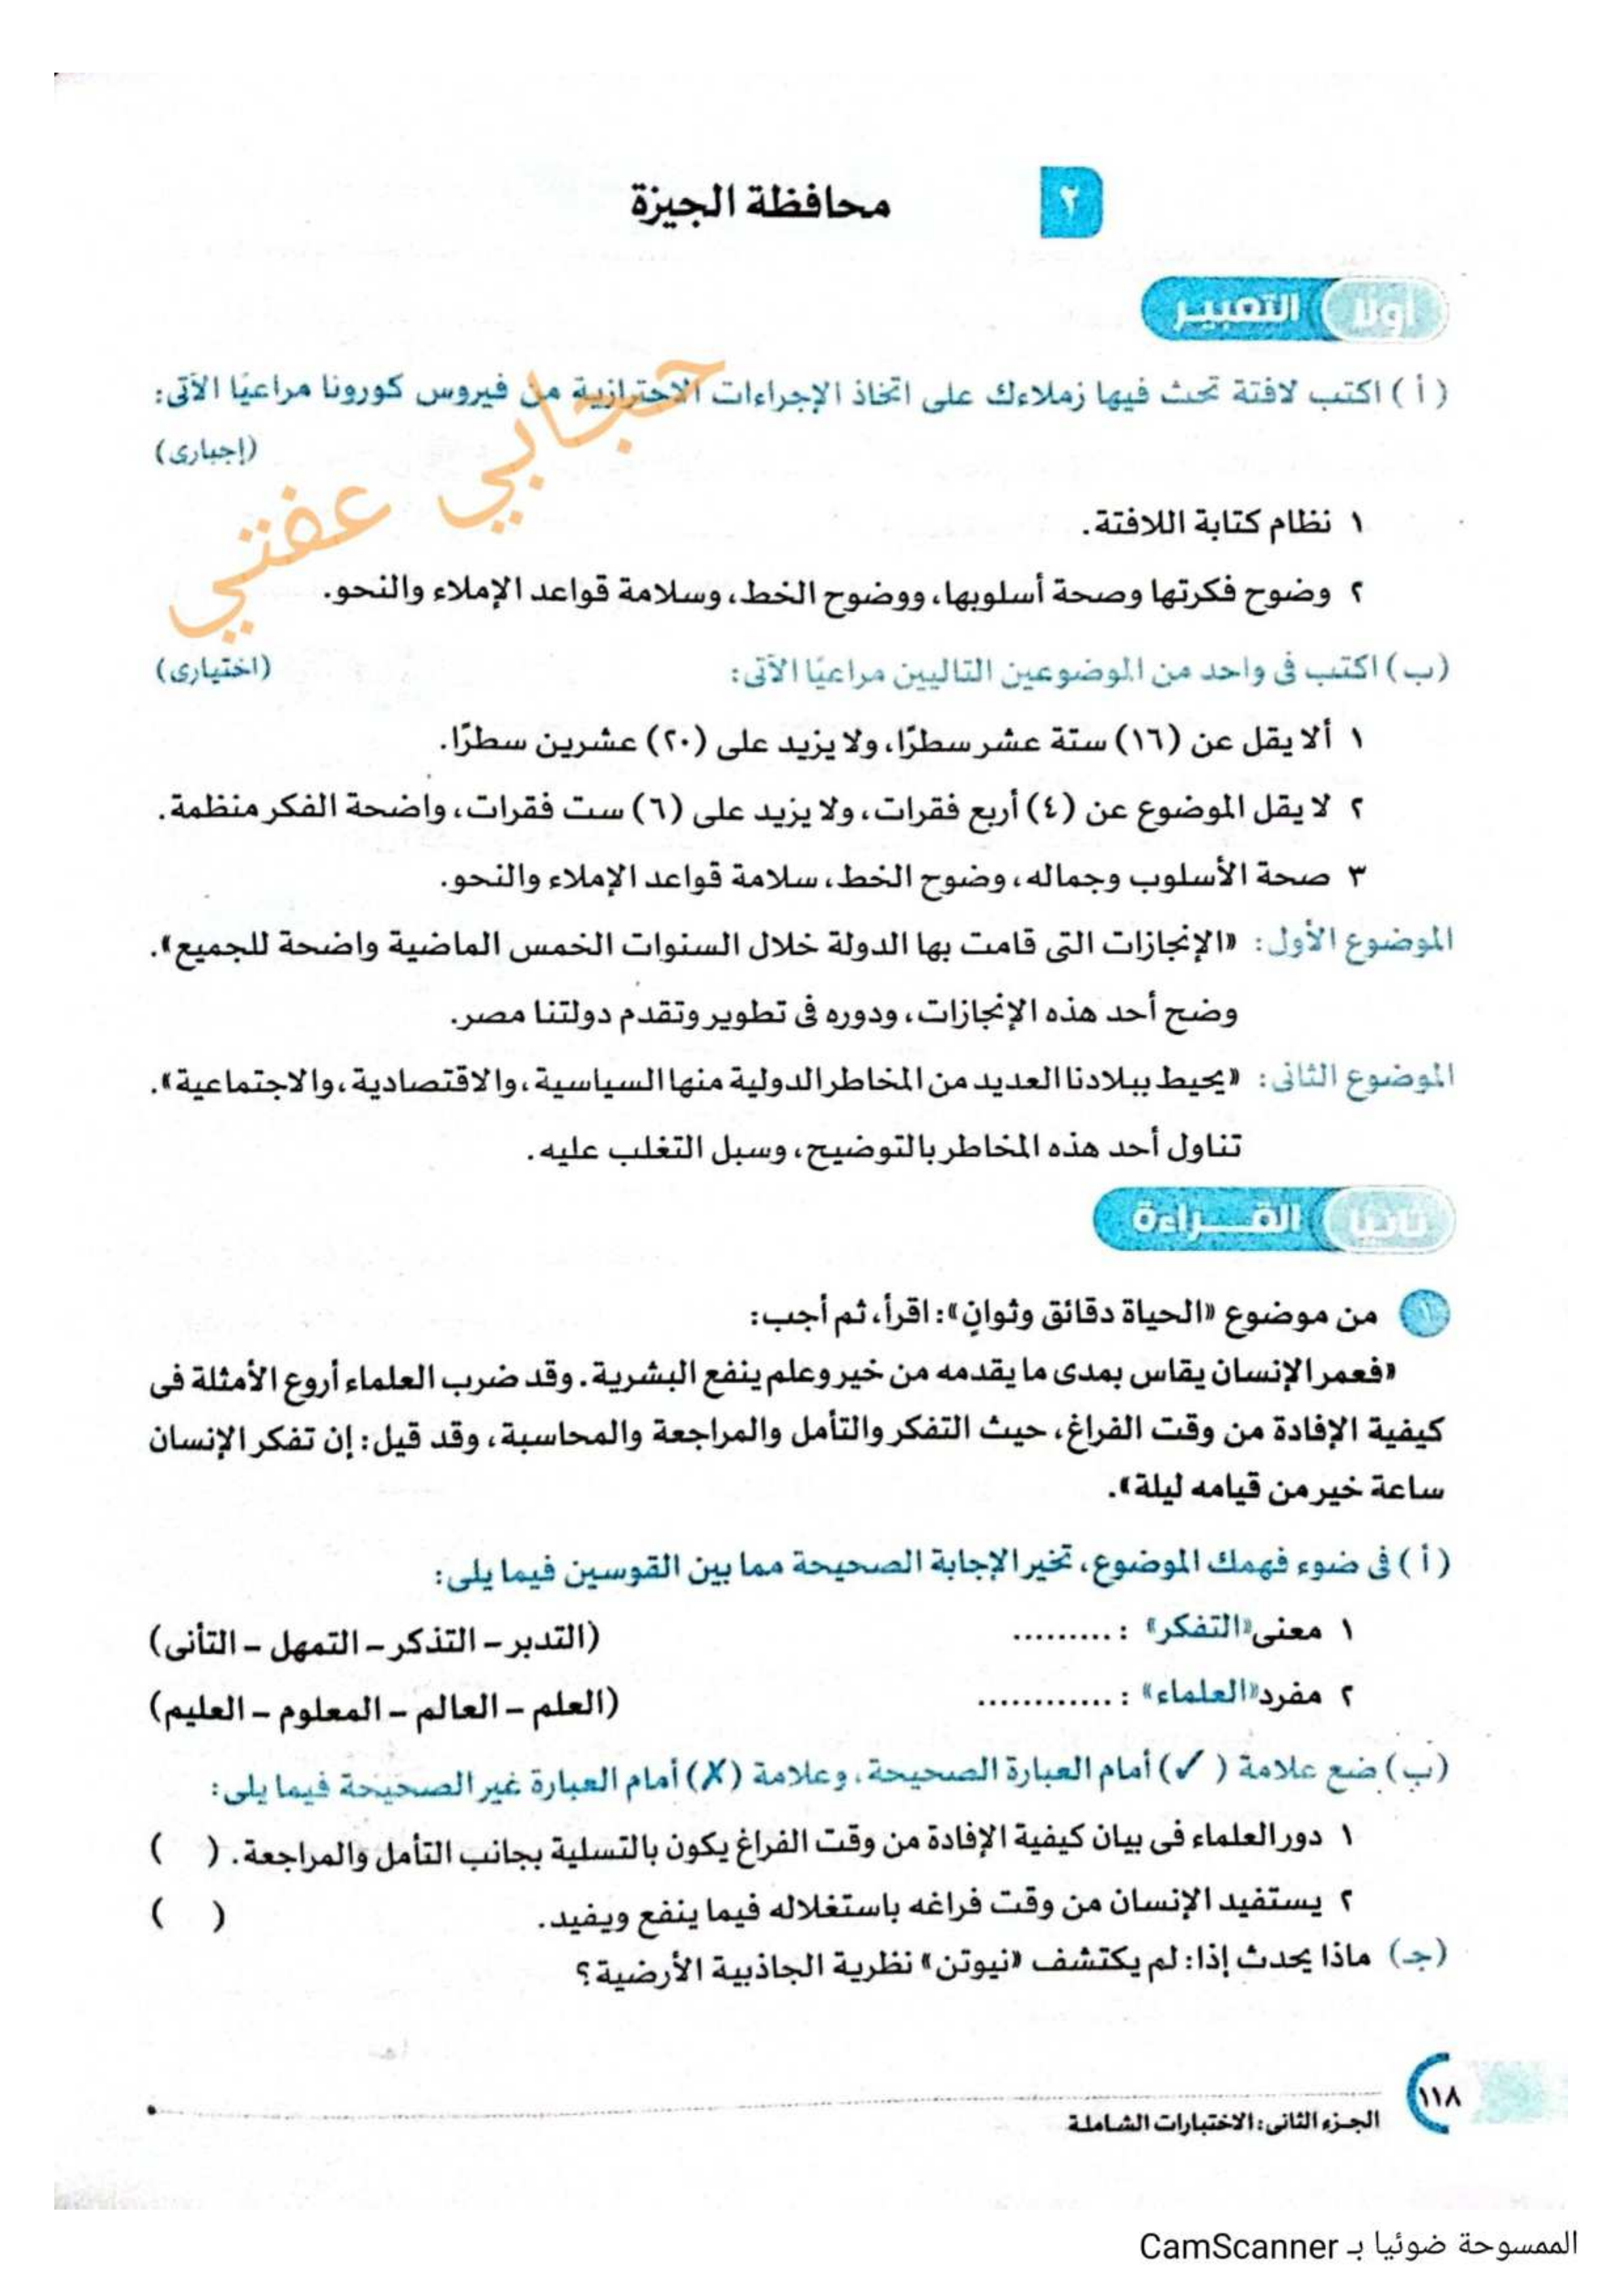 ٢
محافظة الجيزة
أولًا التعبير
(أ) اكتب لافتة تحث فيها زملاءك على اتخاذ الإجراءات الاحترازية من فيروس كورونا مراعيًا الآتى:
(إجبارى)
حجابي عفتي
١ نظام كتابة اللافتة.
٢ وضوح فكرتها وصحة أسلوبها، ووضوح الخط، وسلامة قواعد الإملاء والنحو.
(ب) اكتب فى واحد من الموضوعين التاليين مراعيًا الآتى: (اختيارى)
١ ألا يقل عن (١٦) ستة عشر سطرًا، ولا يزيد على (٢٠) عشرين سطرًا.
٢ لا يقل الموضوع عن (٤) أربع فقرات، ولا يزيد على (٦) ست فقرات، واضحة الفكر منظمة.
٣ صحة الأسلوب وجماله، وضوح الخط، سلامة قواعد الإملاء والنحو.
الموضوع الأول: «الإنجازات التى قامت بها الدولة خلال السنوات الخمس الماضية واضحة للجميع».
وضح أحد هذه الإنجازات، ودوره فى تطوير وتقدم دولتنا مصر.
الموضوع الثانى: «يحيط ببلادنا العديد من المخاطر الدولية منها السياسية، والاقتصادية، والاجتماعية».
تناول أحد هذه المخاطر بالتوضيح، وسبل التغلب عليه.
ثانيًا القـــراءة
١ من موضوع «الحياة دقائق وثوانٍ»: اقرأ، ثم أجب:
«فعمر الإنسان يقاس بمدى ما يقدمه من خير وعلم ينفع البشرية. وقد ضرب العلماء أروع الأمثلة فى
كيفية الإفادة من وقت الفراغ، حيث التفكر والتأمل والمراجعة والمحاسبة، وقد قيل: إن تفكر الإنسان
ساعة خير من قيامه ليلة».
(أ) فى ضوء فهمك الموضوع، تخير الإجابة الصحيحة مما بين القوسين فيما يلى:
١ معنى «التفكر» : ......... (التدبر – التذكر – التمهل – التأنى)
٢ مفرد «العلماء» : ............ (العلم – العالم – المعلوم – العليم)
(ب) ضع علامة (✓) أمام العبارة الصحيحة، وعلامة (✗) أمام العبارة غير الصحيحة فيما يلى:
١ دور العلماء فى بيان كيفية الإفادة من وقت الفراغ يكون بالتسلية بجانب التأمل والمراجعة. ( )
٢ يستفيد الإنسان من وقت فراغه باستغلاله فيما ينفع ويفيد. ( )
(جـ) ماذا يحدث إذا: لم يكتشف «نيوتن» نظرية الجاذبية الأرضية؟
١١٨
الجزء الثانى: الاختبارات الشاملة
الممسوحة ضوئيا بـ CamScanner